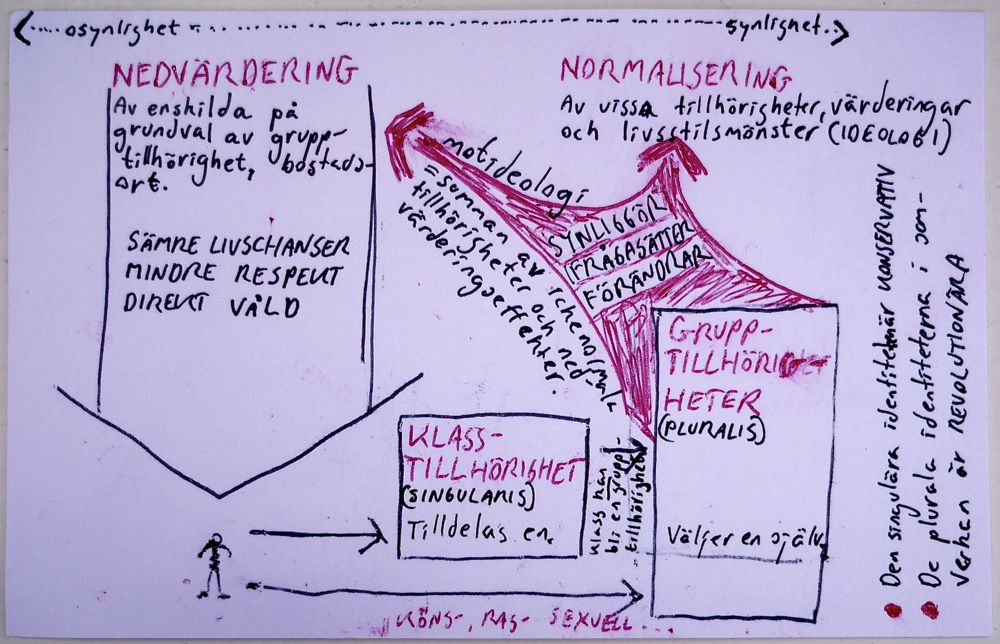 osynlighet
synlighet
NEDVÄRDERING
Av enskilda på
grundval av grupp-
tillhörighet, bostads-
ort.
SÄMRE LIVSCHANSER
MINDRE RESPEKT
DIREKT VÅLD
NORMALISERING
Av vissa tillhörigheter, värderingar
och livsstilsmönster (IDEOLOGI)
motideologi
= summan av ickenormala
tillhörigheter och ned-
värderingseffekter.
SYNLIGGÖR
IFRÅGASÄTTER
FÖRÄNDRAR
KLASS-
TILLHÖRIGHET
(SINGULARIS)
Tilldelas en.
klass kan
bli en grupp-
tillhörighet
GRUPP-
TILLHÖRIG-
HETER
(PLURALIS)
Väljer en själv.
KÖNS-, RAS- SEXUELL...
Den singulära identiteten är KONSERVATIV
De plurala identiteterna i sam-
verkan är REVOLUTIONÄRA